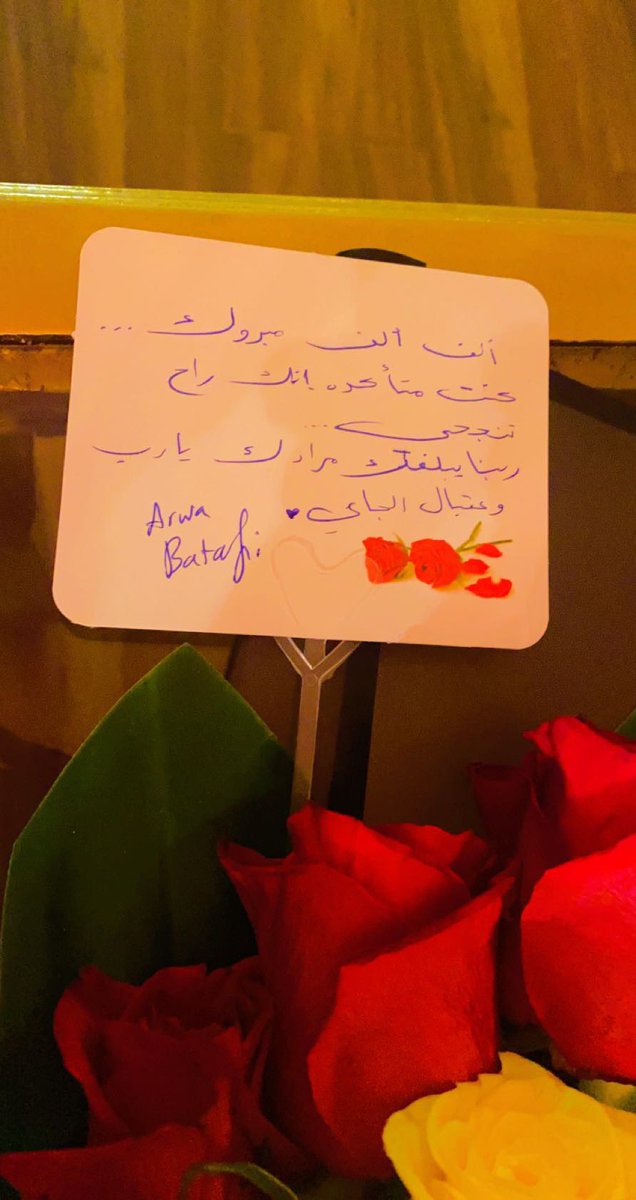 ألف ألف مبروك ...
كنت متأكده انك راح
تنجحي ...
ربنا يبلغك مرادك يارب
وعقبال الجاي ♥
Arwa
Batafi